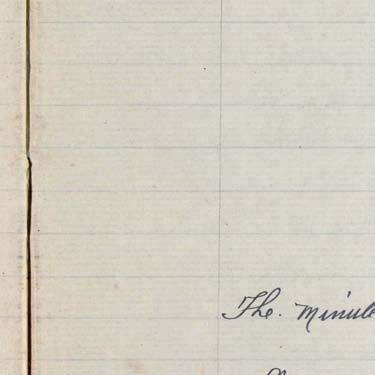 The. minute